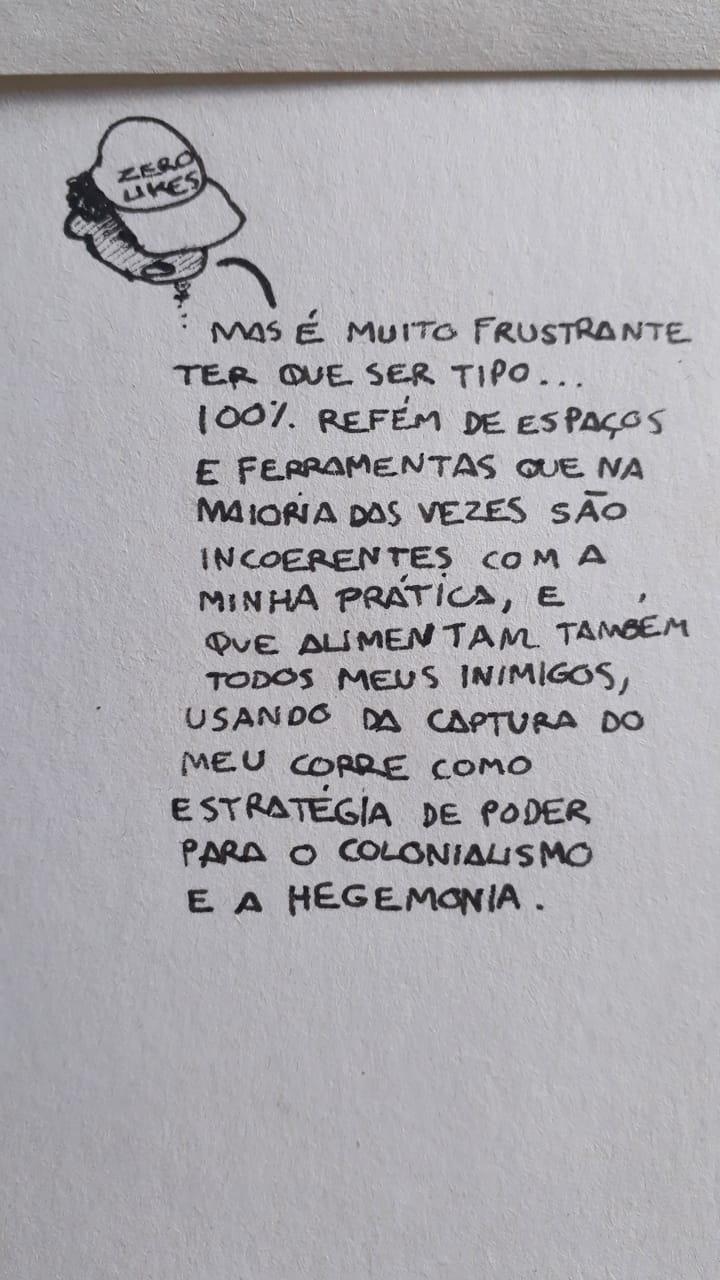 ZERO
LIKES
MAS É MUITO FRUSTRANTE
TER QUE SER TIPO...
100% REFÉM DE ESPAÇOS
E FERRAMENTAS QUE NA
MAIORIA DAS VEZES SÃO
INCOERENTES COM A
MINHA PRÁTICA, E
QUE ALIMENTAM TAMBÉM
TODOS MEUS INIMIGOS,
USANDO DA CAPTURA DO
MEU CORRE COMO
ESTRATÉGIA DE PODER
PARA O COLONIALISMO
E A HEGEMONIA.